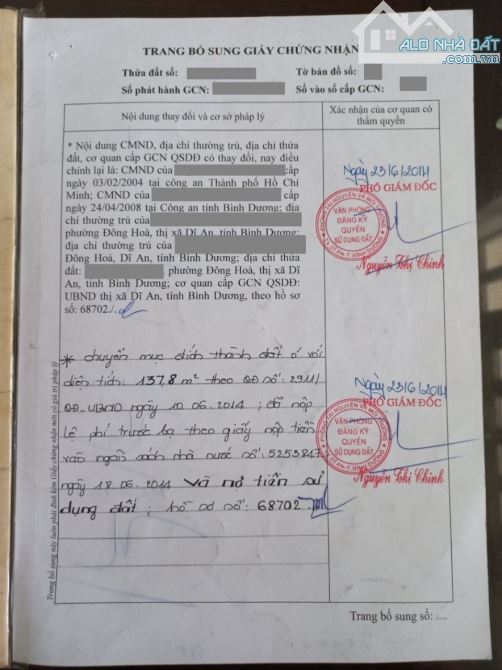 ALO NHÀ ĐẤT
.com.vn
TRANG BỔ SUNG GIẤY CHỨNG NHẬN
Thửa đất số: Tờ bản đồ số:
Số phát hành GCN: Số vào sổ cấp GCN:
Nội dung thay đổi và cơ sở pháp lý
Xác nhận của cơ quan có
thẩm quyền
* Nội dung CMND, địa chỉ thường trú, địa chỉ thửa
đất, cơ quan cấp GCN QSDĐ có thay đổi, nay điều
chỉnh lại là: CMND của cấp
ngày 03/02/2004 tại công an Thành phố Hồ Chí
Minh; CMND của cấp
ngày 24/04/2008 tại Công an tỉnh Bình Dương; địa
chỉ thường trú của ở
phường Đông Hoà, thị xã Dĩ An, tỉnh Bình Dương;
địa chỉ thường trú của
Đông Hoà, Dĩ An, tỉnh Bình Dương; địa chỉ thửa
đất: phường Đông Hoà, thị xã Dĩ
An, tỉnh Bình Dương; cơ quan cấp GCN QSDĐ:
UBND thị xã Dĩ An, tỉnh Bình Dương, theo hồ sơ
số: 68702./.
Ngày 23/6/2014
PHÓ GIÁM ĐỐC
VĂN PHÒNG
ĐĂNG KÝ
QUYỀN
SỬ DỤNG ĐẤT
Nguyễn Thị Chinh
* chuyển mục đích thành đất ở với
diện tích: 137,8 m² theo QĐ số: 2911/
QĐ.UBND ngày 10.06.2014; đã nộp
lệ phí trước bạ theo giấy nộp tiền
vào ngân sách nhà nước số: 5253847
ngày 18.06.2014 và nợ tiền sử
dụng đất; hồ sơ số: 68702
Ngày 23/6/2014
PHÓ GIÁM ĐỐC
VĂN PHÒNG
ĐĂNG KÝ
QUYỀN
SỬ DỤNG ĐẤT
Nguyễn Thị Chinh
Trang bổ sung này luôn phải đính kèm Giấy chứng nhận mới có giá trị pháp lý
Trang bổ sung số: ....